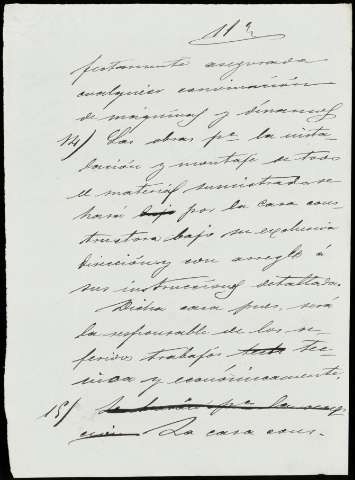 11ª
fectamente asegurada
cualquier convinación
de máquinas y dinamos
14) Las obras pª la insta-
lación y montaje de todo
el material suministrado se
hará bajo por la casa cons-
tructora bajo su exclusiva
dirección y con arreglo á
sus instrucciones detalladas.
Dicha casa pues, será
la responsable de los re-
feridos trabajos tec-
nica y económicamente.
15) Se harán pª la
La casa cons-